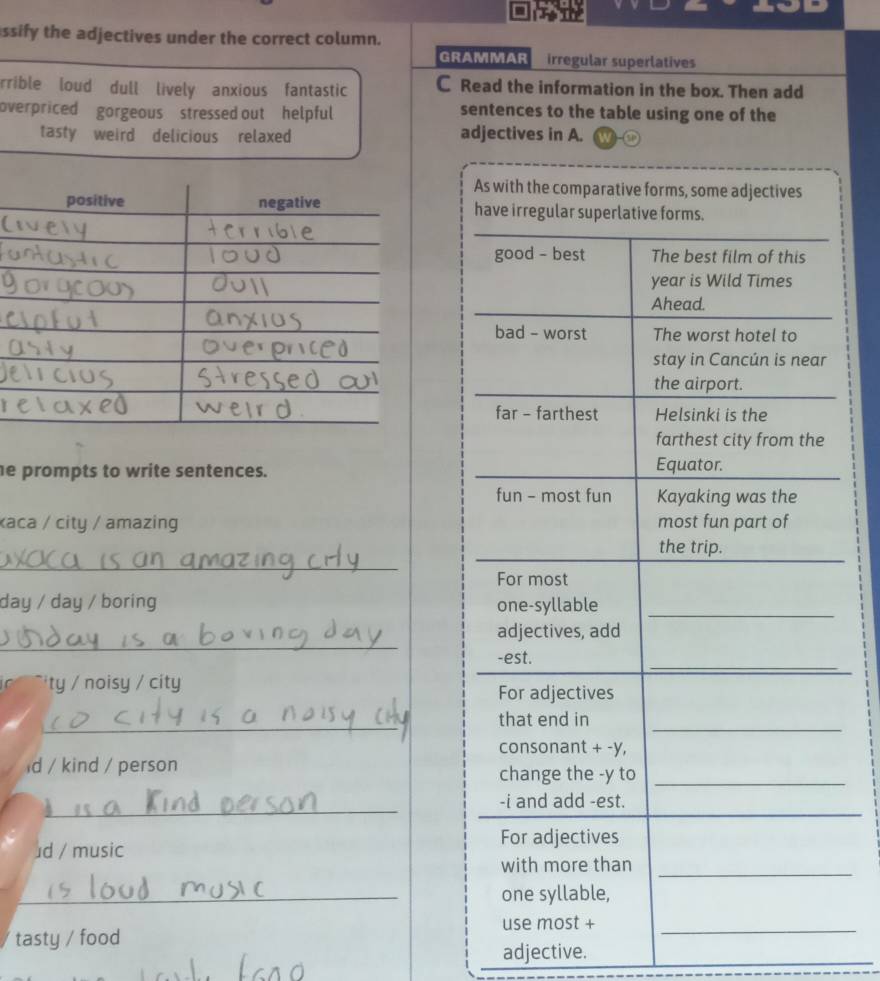 ssify the adjectives under the correct column.
rrible loud dull lively anxious fantastic
overpriced gorgeous stressed out helpful
tasty weird delicious relaxed
positive negative
lively terrible
fantastic loud
gorgeous dull
elpful anxius
asty overpriced
delicius stressed out
relaxed weird.
he prompts to write sentences.
xaca / city / amazing
axaca is an amazing city
day / day / boring
day is a boring day
ity / noisy / city
co city is a noisy city
d / kind / person
is a kind person
ud / music
is loud music
/ tasty / food
GRAMMAR irregular superlatives
C Read the information in the box. Then add
sentences to the table using one of the
adjectives in A. W SP
As with the comparative forms, some adjectives
have irregular superlative forms.
good – best The best film of this
year is Wild Times
Ahead.
bad – worst The worst hotel to
stay in Cancún is near
the airport.
far – farthest Helsinki is the
farthest city from the
Equator.
fun – most fun Kayaking was the
most fun part of
the trip.
For most
one-syllable
adjectives, add
-est.
For adjectives
that end in
consonant + -y,
change the -y to
-i and add -est.
For adjectives
with more than
one syllable,
use most +
adjective.